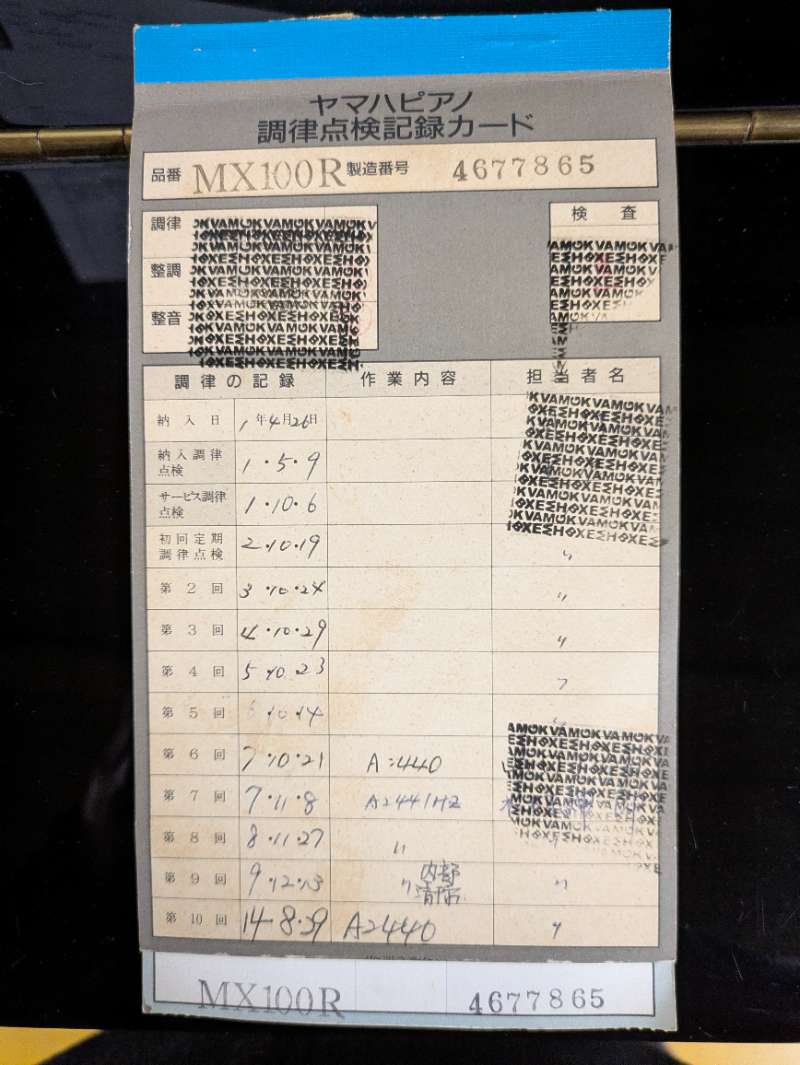 ヤマハピアノ
調律点検記録カード
品番 MX100R 製造番号 4677865
調律
整調
整音
検査
調律の記録 作業内容 担当者名
納入日 1年4月26日
納入調律点検 1・5・9
サービス調律点検 1・10・6
初回定期調律点検 2・10・19 〃
第2回 3・10・24 〃
第3回 4・10・29 〃
第4回 5・10・23 〃
第5回 6・10・14 〃
第6回 7・10・21 A=440
第7回 7・11・8 A=441HZ
第8回 8・11・27 〃 〃
第9回 9・12・13 〃 内部清掃 〃
第10回 14・8・29 A=440 〃
MX100R 4677865